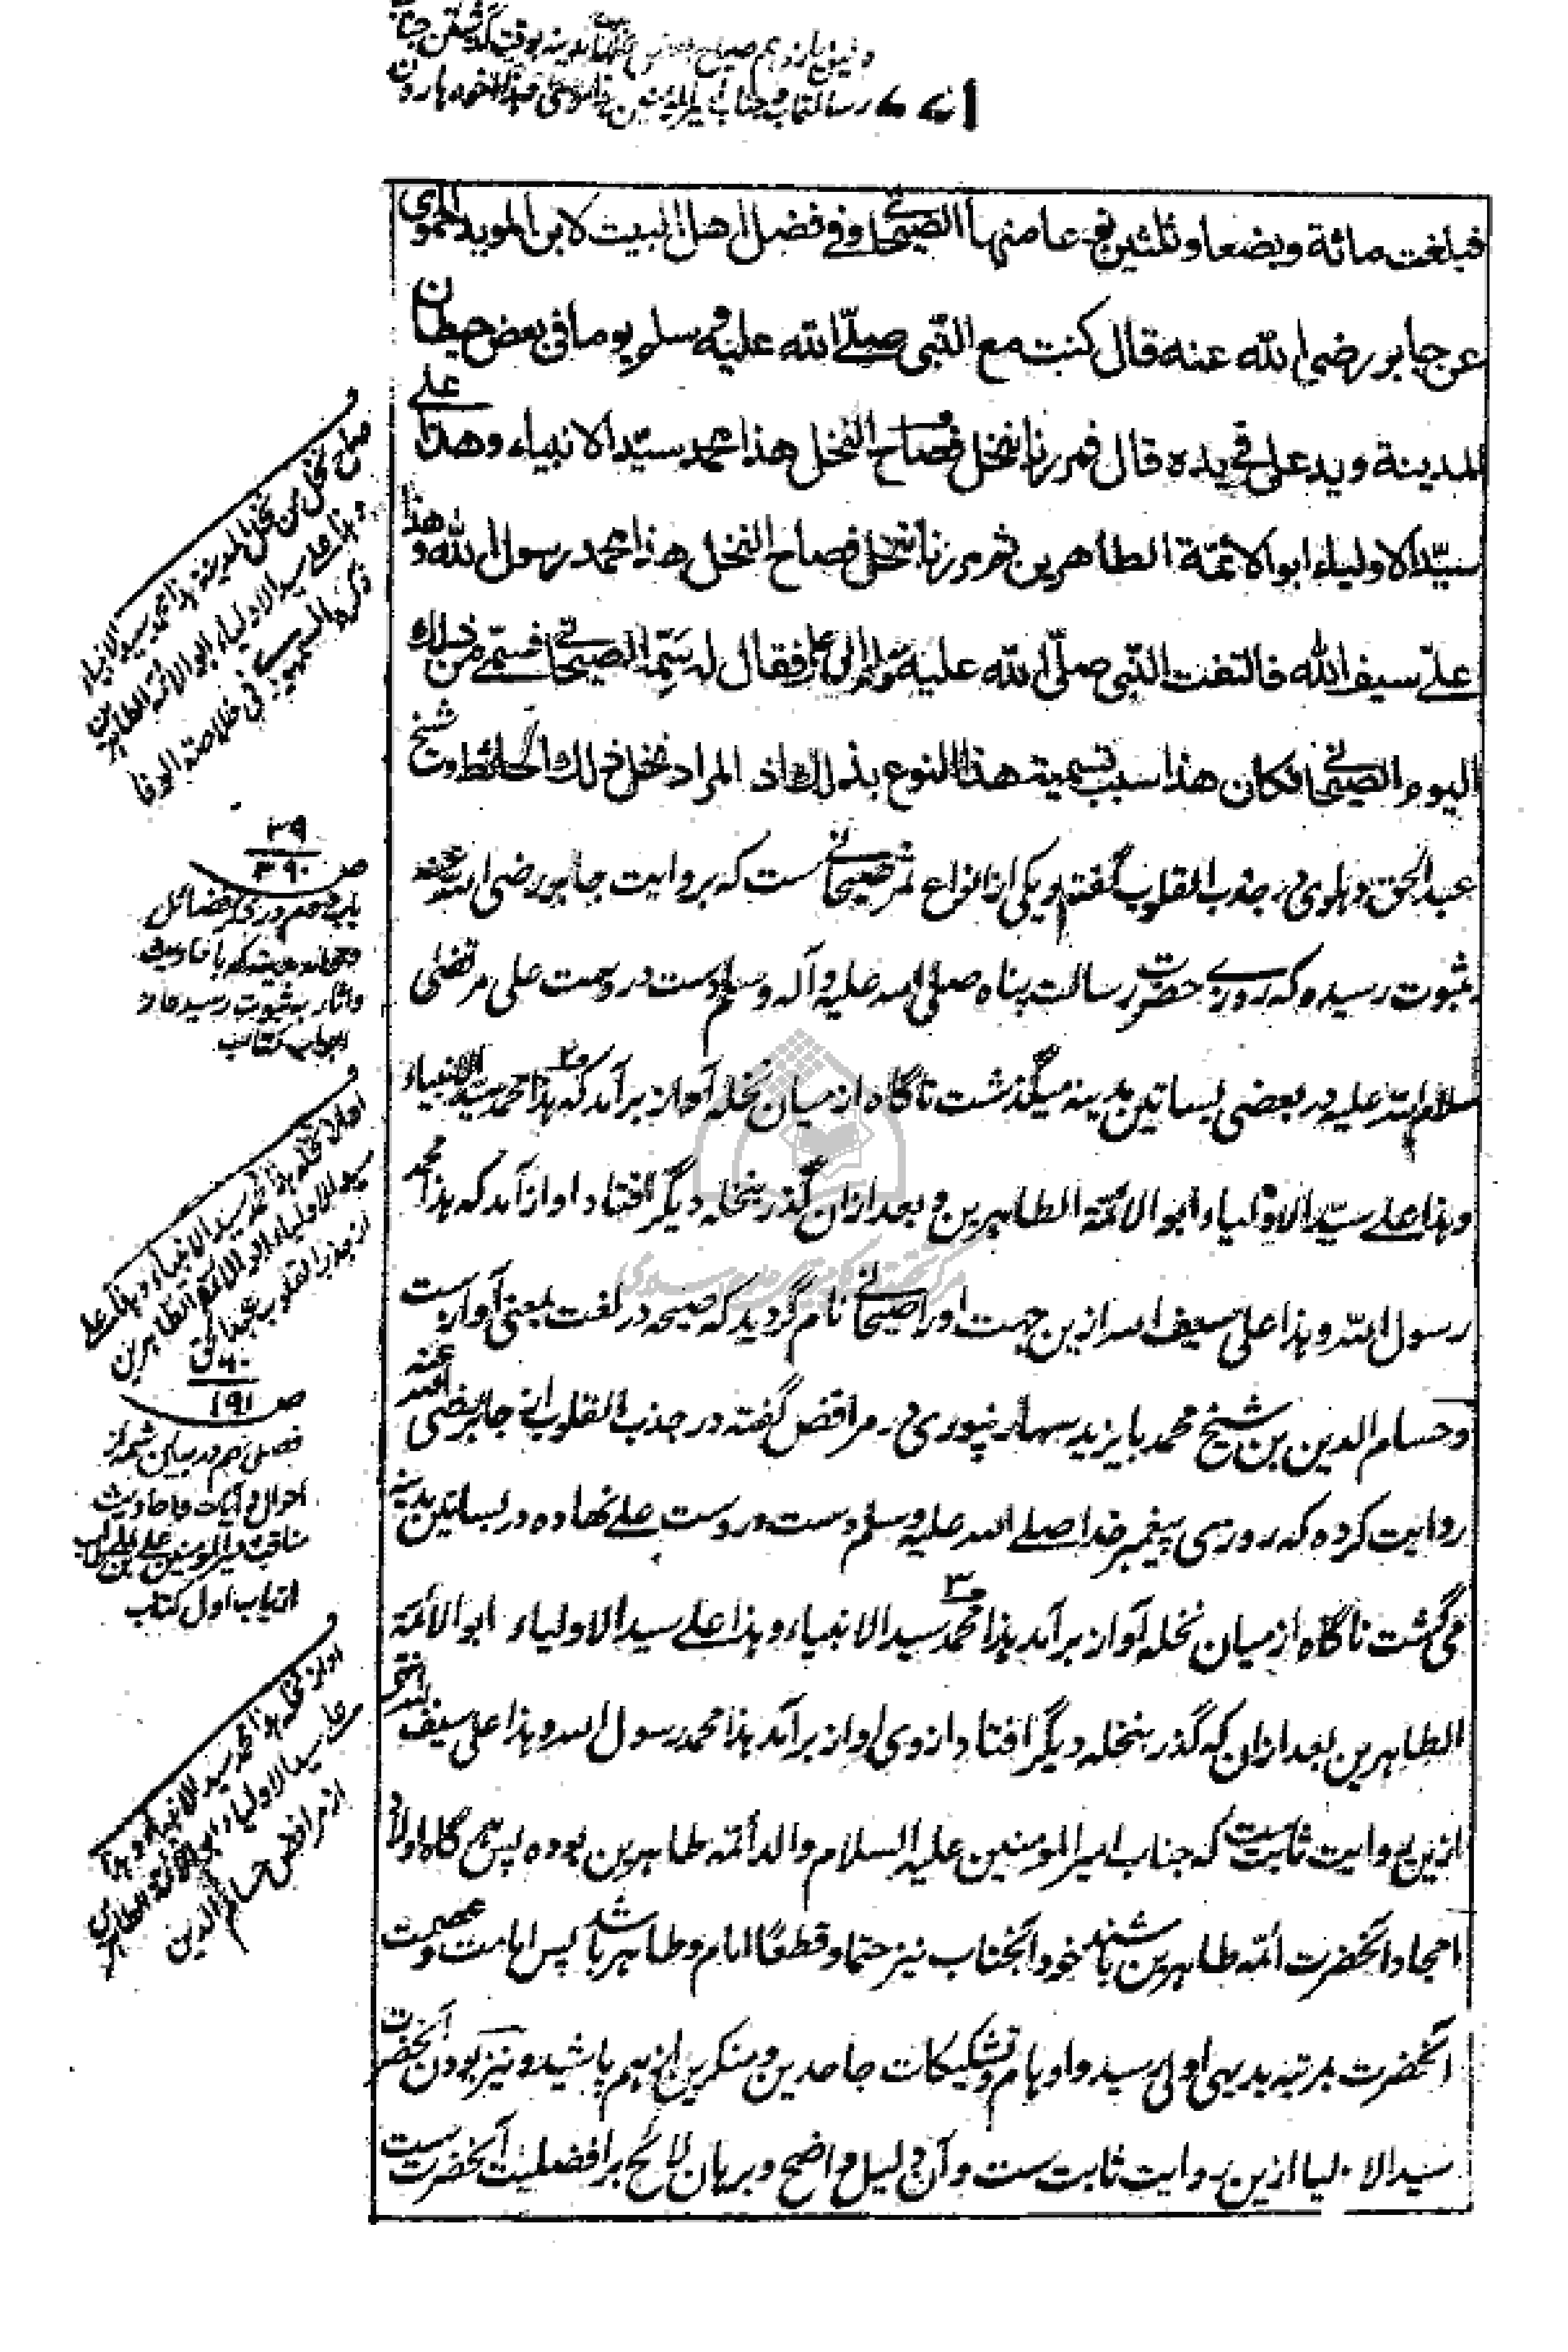 دلیل یازدهم صیاح بعض نخلهای مدینه بوقت گذشتن جناب
رسالتمآب و جناب امیر المومنین
فبلغت مائة وبضعا وثلثين نوعا منها الصيحاني وفي فضل اهل البيت لابن المويد الحموي
عن جابر رضي الله عنه قال كنت مع النبي صلّى الله عليه وسلم يوما في بعض حيطان
المدينة ويد علي في يده قال فمررنا بنخل فصاح النخل هذا محمد سيّد الانبياء وهذا علي
سيّد الاولياء ابو الائمّة الطاهرين ثم مررنا بنخل فصاح النخل هذا محمد رسول الله وهذا
عليّ سيف الله فالتفت النّبي صلّى الله عليه وسلم الى علي فقال له سَمِّه الصيحاني فسمّي من ذلك
اليوم الصيحاني فكان هذا سبب تسمية هذا النوع بذلك اذ المراد نخل ذلك الحائط وشيخ
عبد الحق دهلوی در جذب القلوب گفته و یکی از انواع تمر صیحانی ست که بروایت جابر رضی الله عنه
بثبوت رسیده که روزے حضرت رسالت پناه صلی الله علیه و آله وسلم دست در دست علی مرتضی
سلام الله علیه در بعضی بساتین مدینه میگذشت ناگاه از میان نخله آواز برآمد که هذا محمد سیّد الانبیاء
وهذا علے سیّد الاولیاء ابو الائمّة الطاهرین و بعد ازان گذر بنخله دیگر افتاد آواز آمد که هذا محمد
رسول الله وهذا علی سیف الله ازین جهت او را صیحانی نام گردید که صیحه در لغت بمعنی آوازست
و حسام الدین بن شیخ محمد بایزید سهارنپوری در مرافض گفته در جذب القلوب از جابر رضی الله عنه
روایت کرده که روزی پیغمبر خدا صلے الله علیه وسلم دست در دست علے نهاده در بساتین مدینه
می گشت ناگاه از میان نخله آواز برآمد هذا محمد سید الانبیاء وهذا علے سید الاولیاء ابو الأئمة
الطاهرین بعد ازان که گذر بنخله دیگر افتاد از وی آواز برآمد هذا محمد رسول الله وهذا علی سیف الله انتهی
ازین روایت ثابت ست که جناب امیر المومنین علیه السلام والد أئمه طاهرین بوده پس هرگاه اولاد
امجاد آنحضرت ائمّه طاهرین باشند خود آنجناب نیز حتما و قطعًا امام و طاهر باشد پس امامت و عصمت
آنحضرت بمرتبه بدیهی اولی رسید و اوهام و تشکیکات جاحدین و منکرین از هم پاشید و نیز بودن آنحضرت
سید الاولیا ازین روایت ثابت ست و آن دلیل واضح و برهان لائح بر افضلیت آنحضرت ست
صاح نخل من نخل المدینة هذا محمد سید الانبیاء
وهذا علے سید الاولیاء ابو الائمة الطاهرین
ذکره السمهودی فی خلاصة الوفا
۳۹
ص ۳۹۰
باب دوم در ذکر فضائل
واثار به ثبوت رسیده از
ابواب کتاب
آواز نخله هذا محمد سید الانبیاء وهذا علی
سید الاولیاء ابو الائمة الطاهرین
از جذب القلوب عبد الحق
۴۰
ص ۱۹۱
فصل نهم در بیان شمه از
احوال و آیات و احادیث
مناقب امیر المومنین علی بن ابی طالب
از باب اول کتاب
آواز نخله هذا محمد سید الانبیاء وهذا
علی سید الاولیاء ابو الائمة الطاهرین
از مرافض حسام الدین